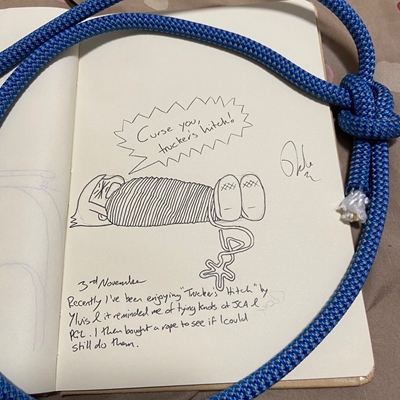 Curse you,
trucker's hitch!
3rd November
Recently I've been enjoying "Trucker's Hitch" by
Ylvis & it reminded me of tying knots at JCA &
PCL. I then bought a rope to see if I could
still do them.